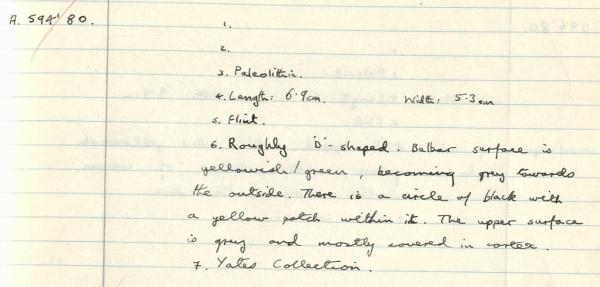 A. 594'80.
1.
2.
3. Paleolithic.
4. Length: 6.9cm. Width: 5.3cm
5. Flint.
6. Roughly 'D'-shaped. Bulbar surface is
yellowish/green, becoming grey towards
the outside. There is a circle of black with
a yellow patch within it. The upper surface
is grey and mostly covered in cortex.
7. Yates Collection.